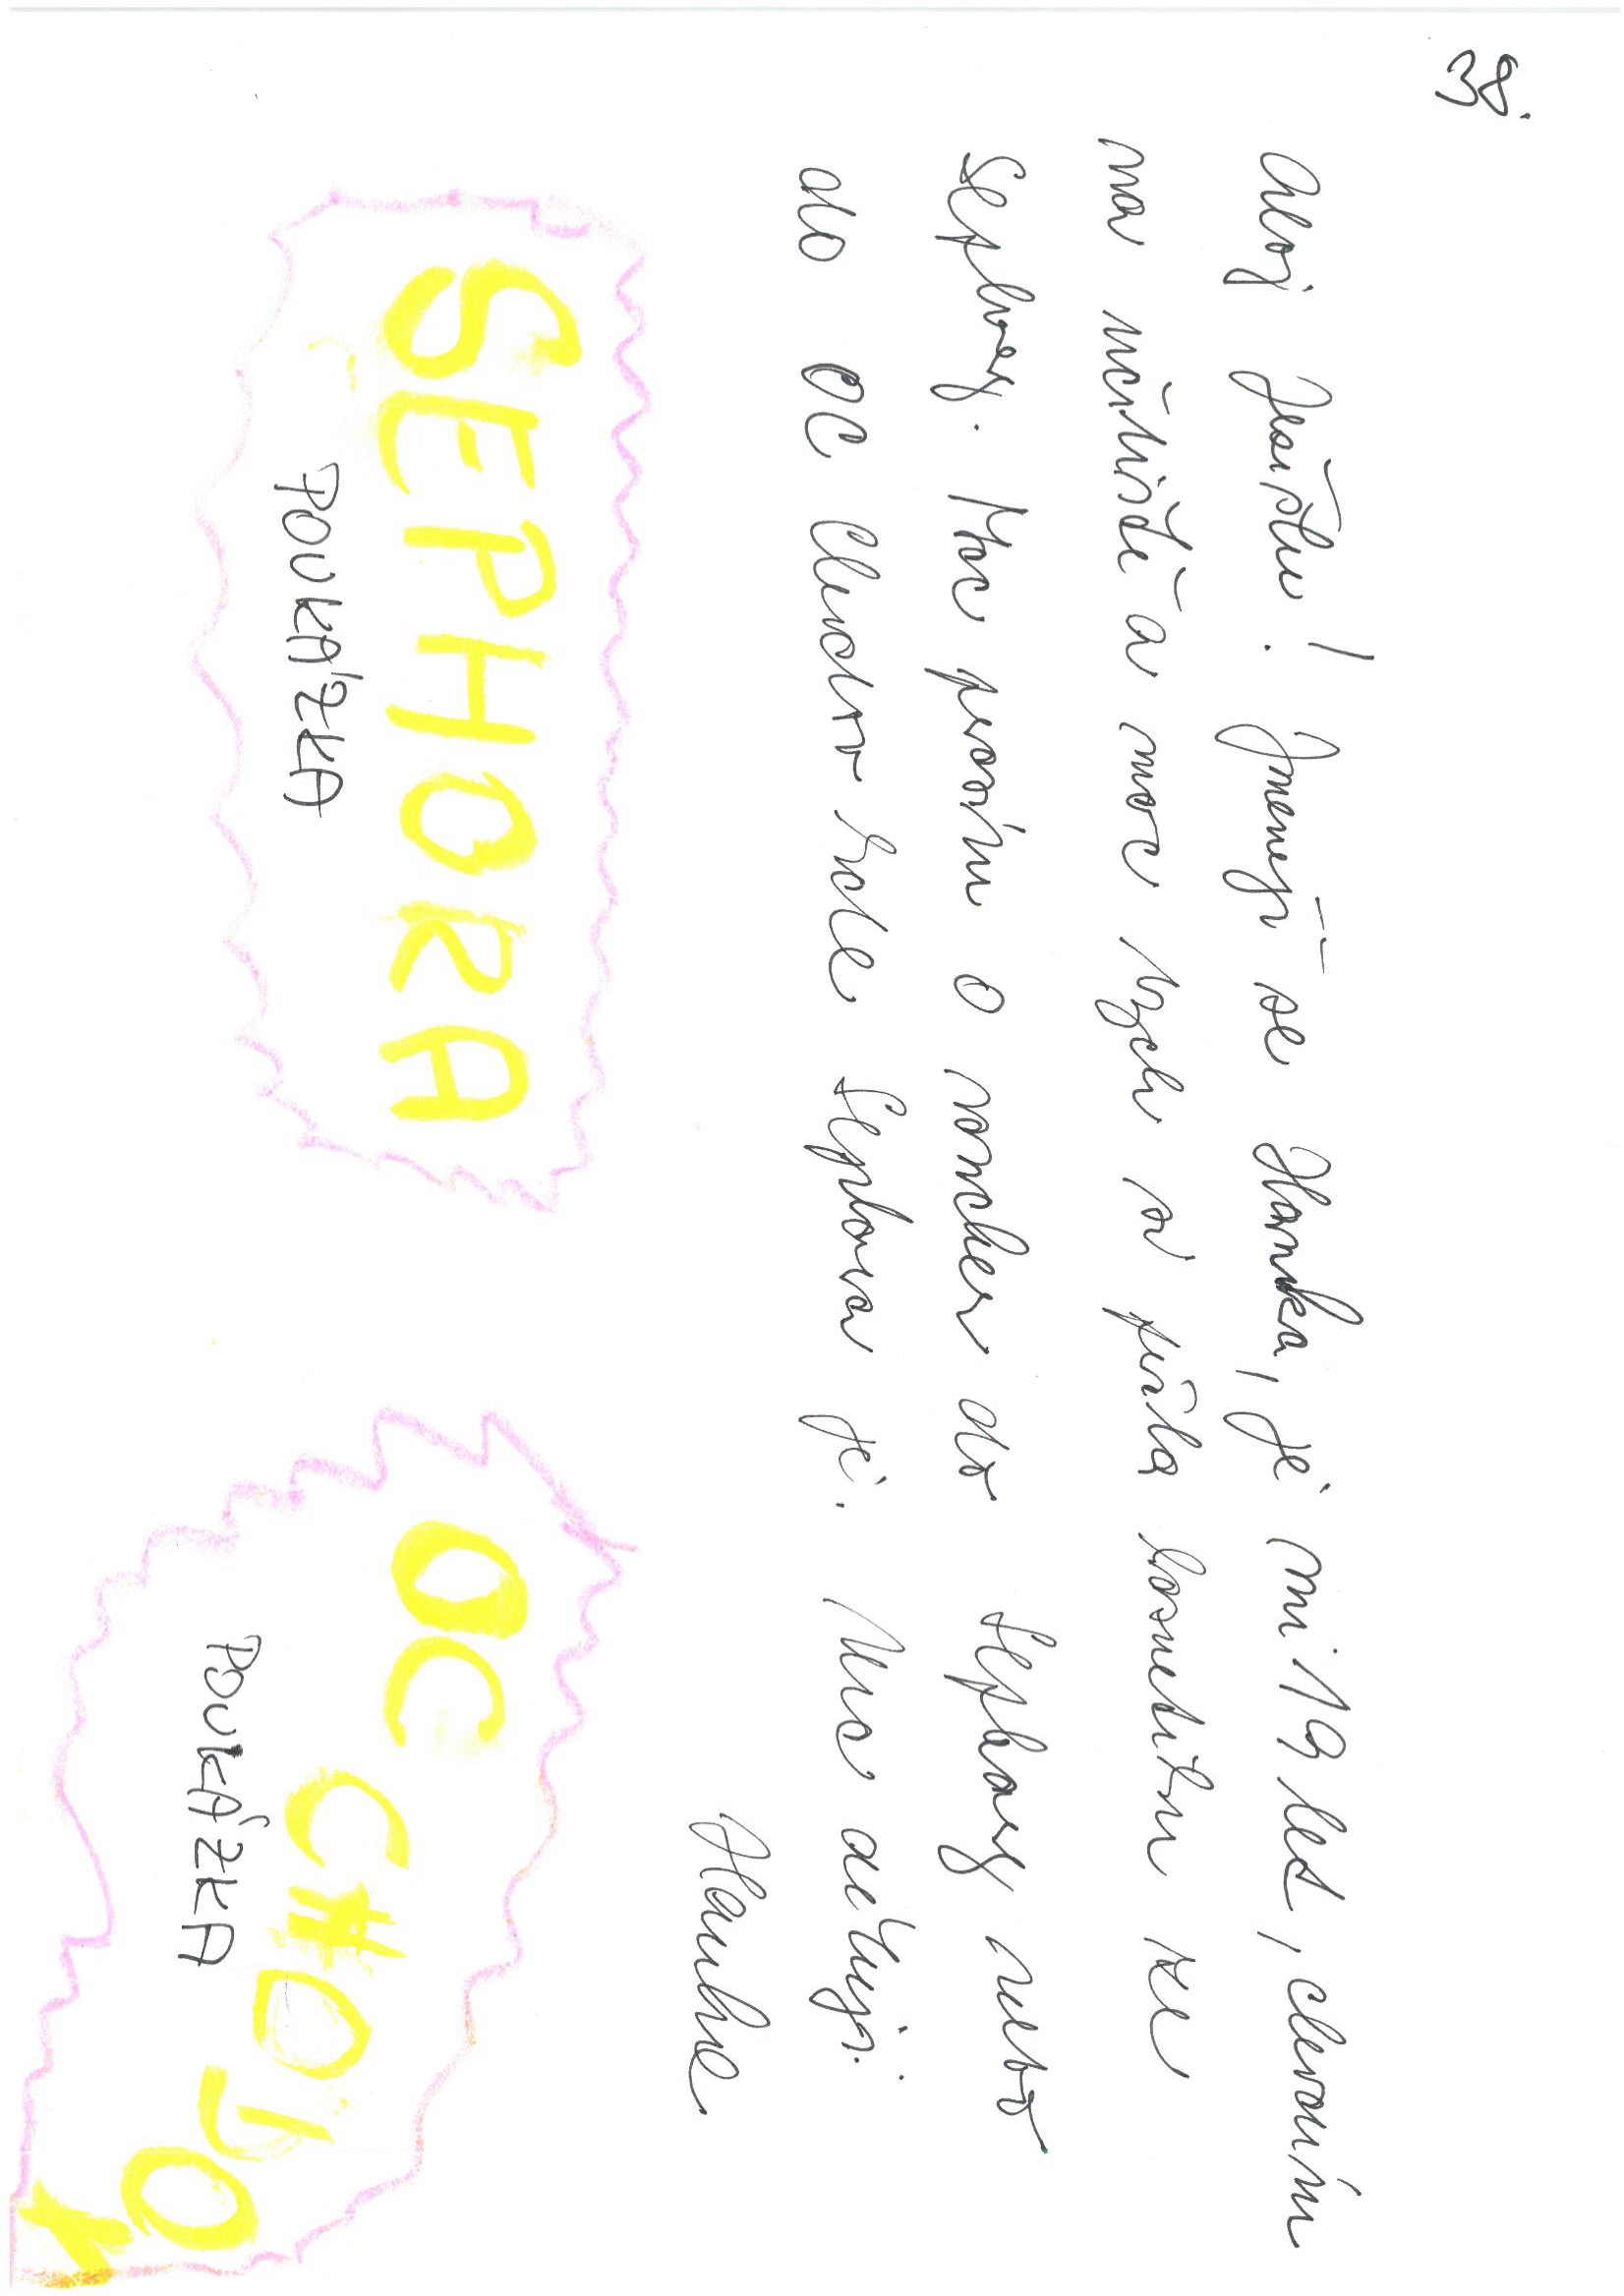 38.
Ahoj Ježíšku! Jmenuji se Hanka, je mi 19 let, chodím
na učiliště a moc bych si přála kosmetiku ze
Sephory. Moc prosím o voucher do Sephory nebo
do OC Chodov kde Sephora je. Moc děkuji.
Hanka
SEPHORA
POUKÁZKA
OC CHODOV
POUKÁZKA